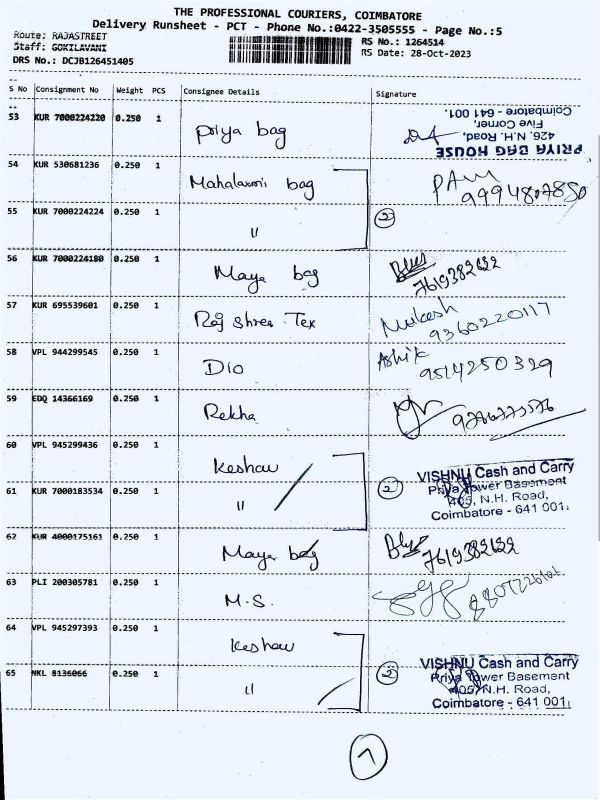 THE PROFESSIONAL COURIERS, COIMBATORE
Delivery Runsheet - PCT - Phone No.:0422-3505555 - Page No.:5
Route: RAJASTREET
RS No.: 1264514
Staff: GOKILAVANI
RS Date: 28-Oct-2023
DRS No.: DCJB126451405
S No Consignment No Weight PCS Consignee Details Signature
53 KUR 7000224220 0.250 1 Priya bag
PRIYA BAG HOUSE
426, N.H. Road,
Five Corner,
Coimbatore - 641 001.
54 KUR 530681236 0.250 1 Mahalaxmi bag
9994807850
55 KUR 7000224224 0.250 1 " 2
56 KUR 7000224180 0.250 1 Maya bag
7619382622
57 KUR 695539601 0.250 1 Raj Shree Tex Mukesh
9360220117
58 VPL 944299545 0.250 1 Dio Ashik
9514250329
59 EDQ 14366169 0.250 1 Rekha
60 VPL 945299436 0.250 1 Keshav
61 KUR 7000183534 0.250 1 " 2
VISHNU Cash and Carry
Priya Tower Basement
405, N.H. Road,
Coimbatore - 641 001.
62 KUR 4000175161 0.250 1 Maya bag
7619382622
63 PLI 200305781 0.250 1 M.S.
64 VPL 945297393 0.250 1 Keshav
65 NKL 8136066 0.250 1 " 2
VISHNU Cash and Carry
Priya Tower Basement
405, N.H. Road,
Coimbatore - 641 001.